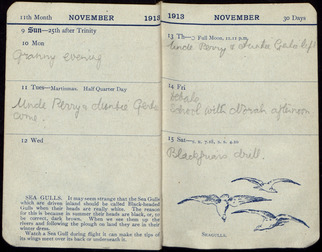 11th Month NOVEMBER 1913
9 Sun—25th after Trinity
10 Mon
Granny evening
11 Tues—Martinmas. Half Quarter Day
Uncle Perry & Auntie Gerts
come.
12 Wed
SEA GULLS. It may seem strange that the Sea Gulls
which are driven island should be called Black-headed
Gulls when their heads are really white. The reason
for this is because in summer their heads are black, or, to
be correct, dark brown. When we see them up the
rivers and following the plough on land they are in their
winter dress.
Watch a Sea Gull during flight it can make the tips of
its wings meet over its back or underneath it.
1913 NOVEMBER 30 Days
13 Th— Full Moon, 11.11 p.m.
Uncle Perry & Auntie Gerts left
14 Fri
School with Norah afternoon
15 Sat—
Blackfriars drill.
SEAGULLS